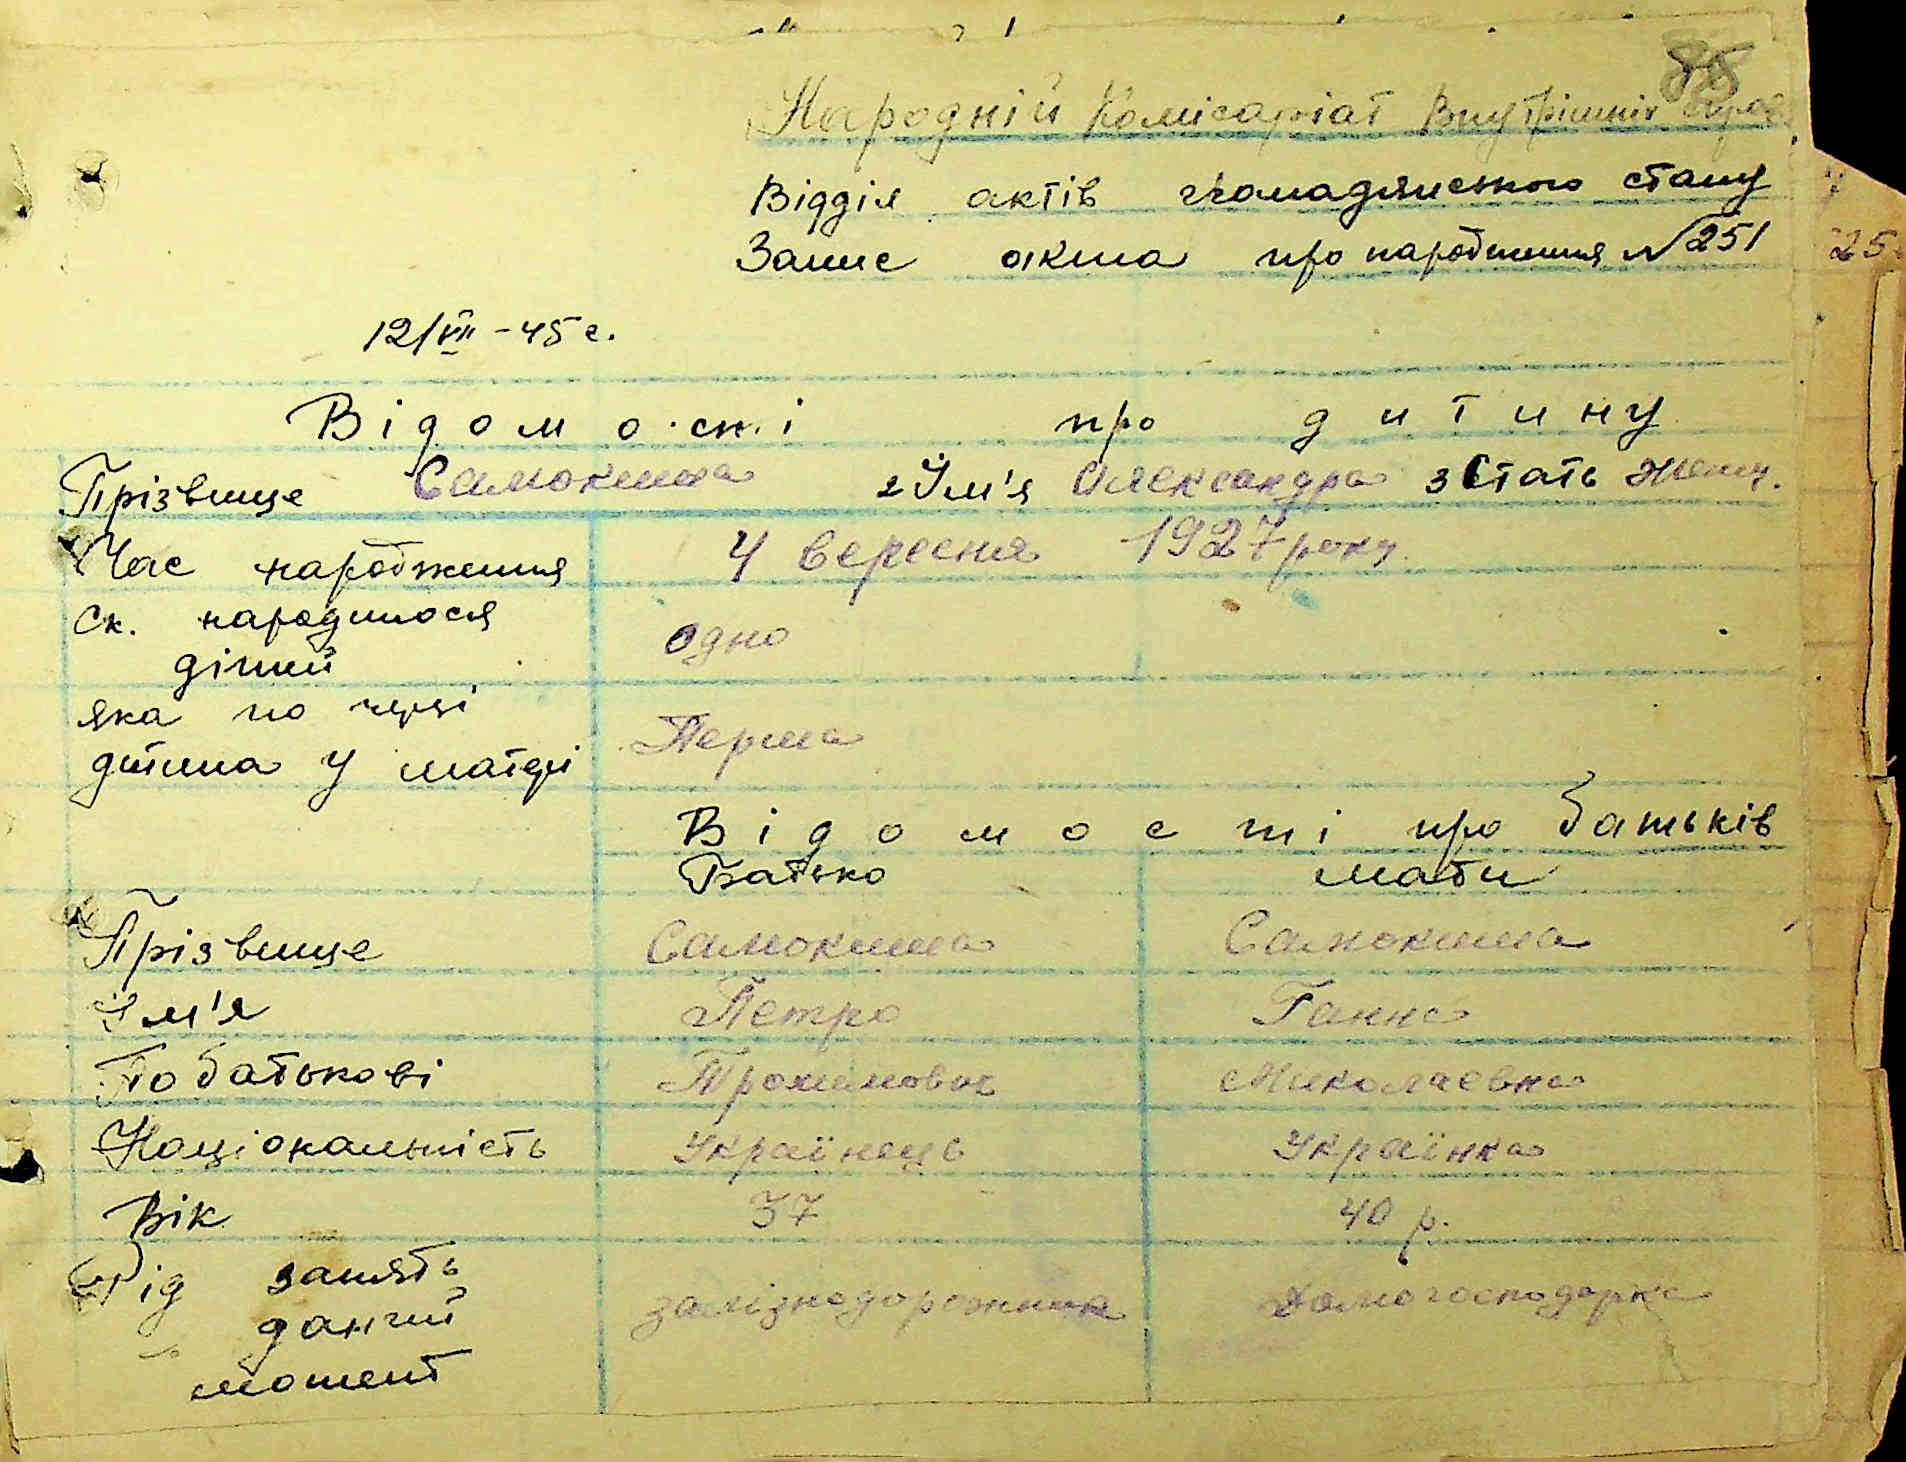 88
Народній Комісаріат Внутрішніх Справ
Відділ актів громадянського стану
Запис акта про народження N 251
25
12/VII - 45 г.
Відомості про дитину
Прізвище Самокиша 2 Ім'я Олександра 3 Стать жены.
Час народження 4 вересня 1927 року.
Ск. народилося
дітей одно
яка по черзі
дитина у матері Перша
Відомості про батьків
Батько мати
Прізвище Самокиша Самокиша
Ім'я Петро Ганна
По батькові Миколаевна
Національність Українець Українка
Вік 37 40 р.
Рід занять
даний
момент залізнодорожник домогосподарка